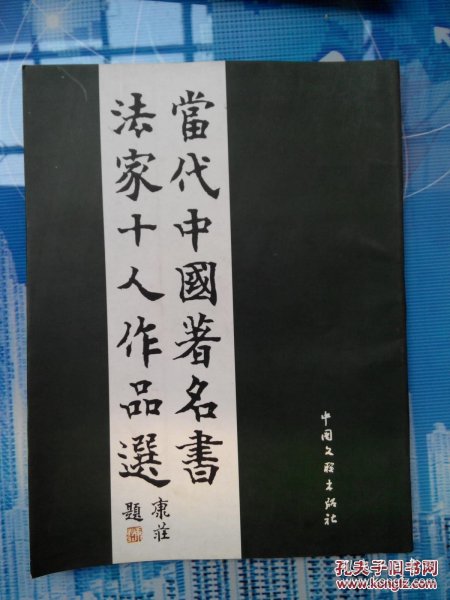 當代中國著名書
法家十人作品選
康莊
題
中国文联出版社
孔夫子旧书网
www.kongfz.com